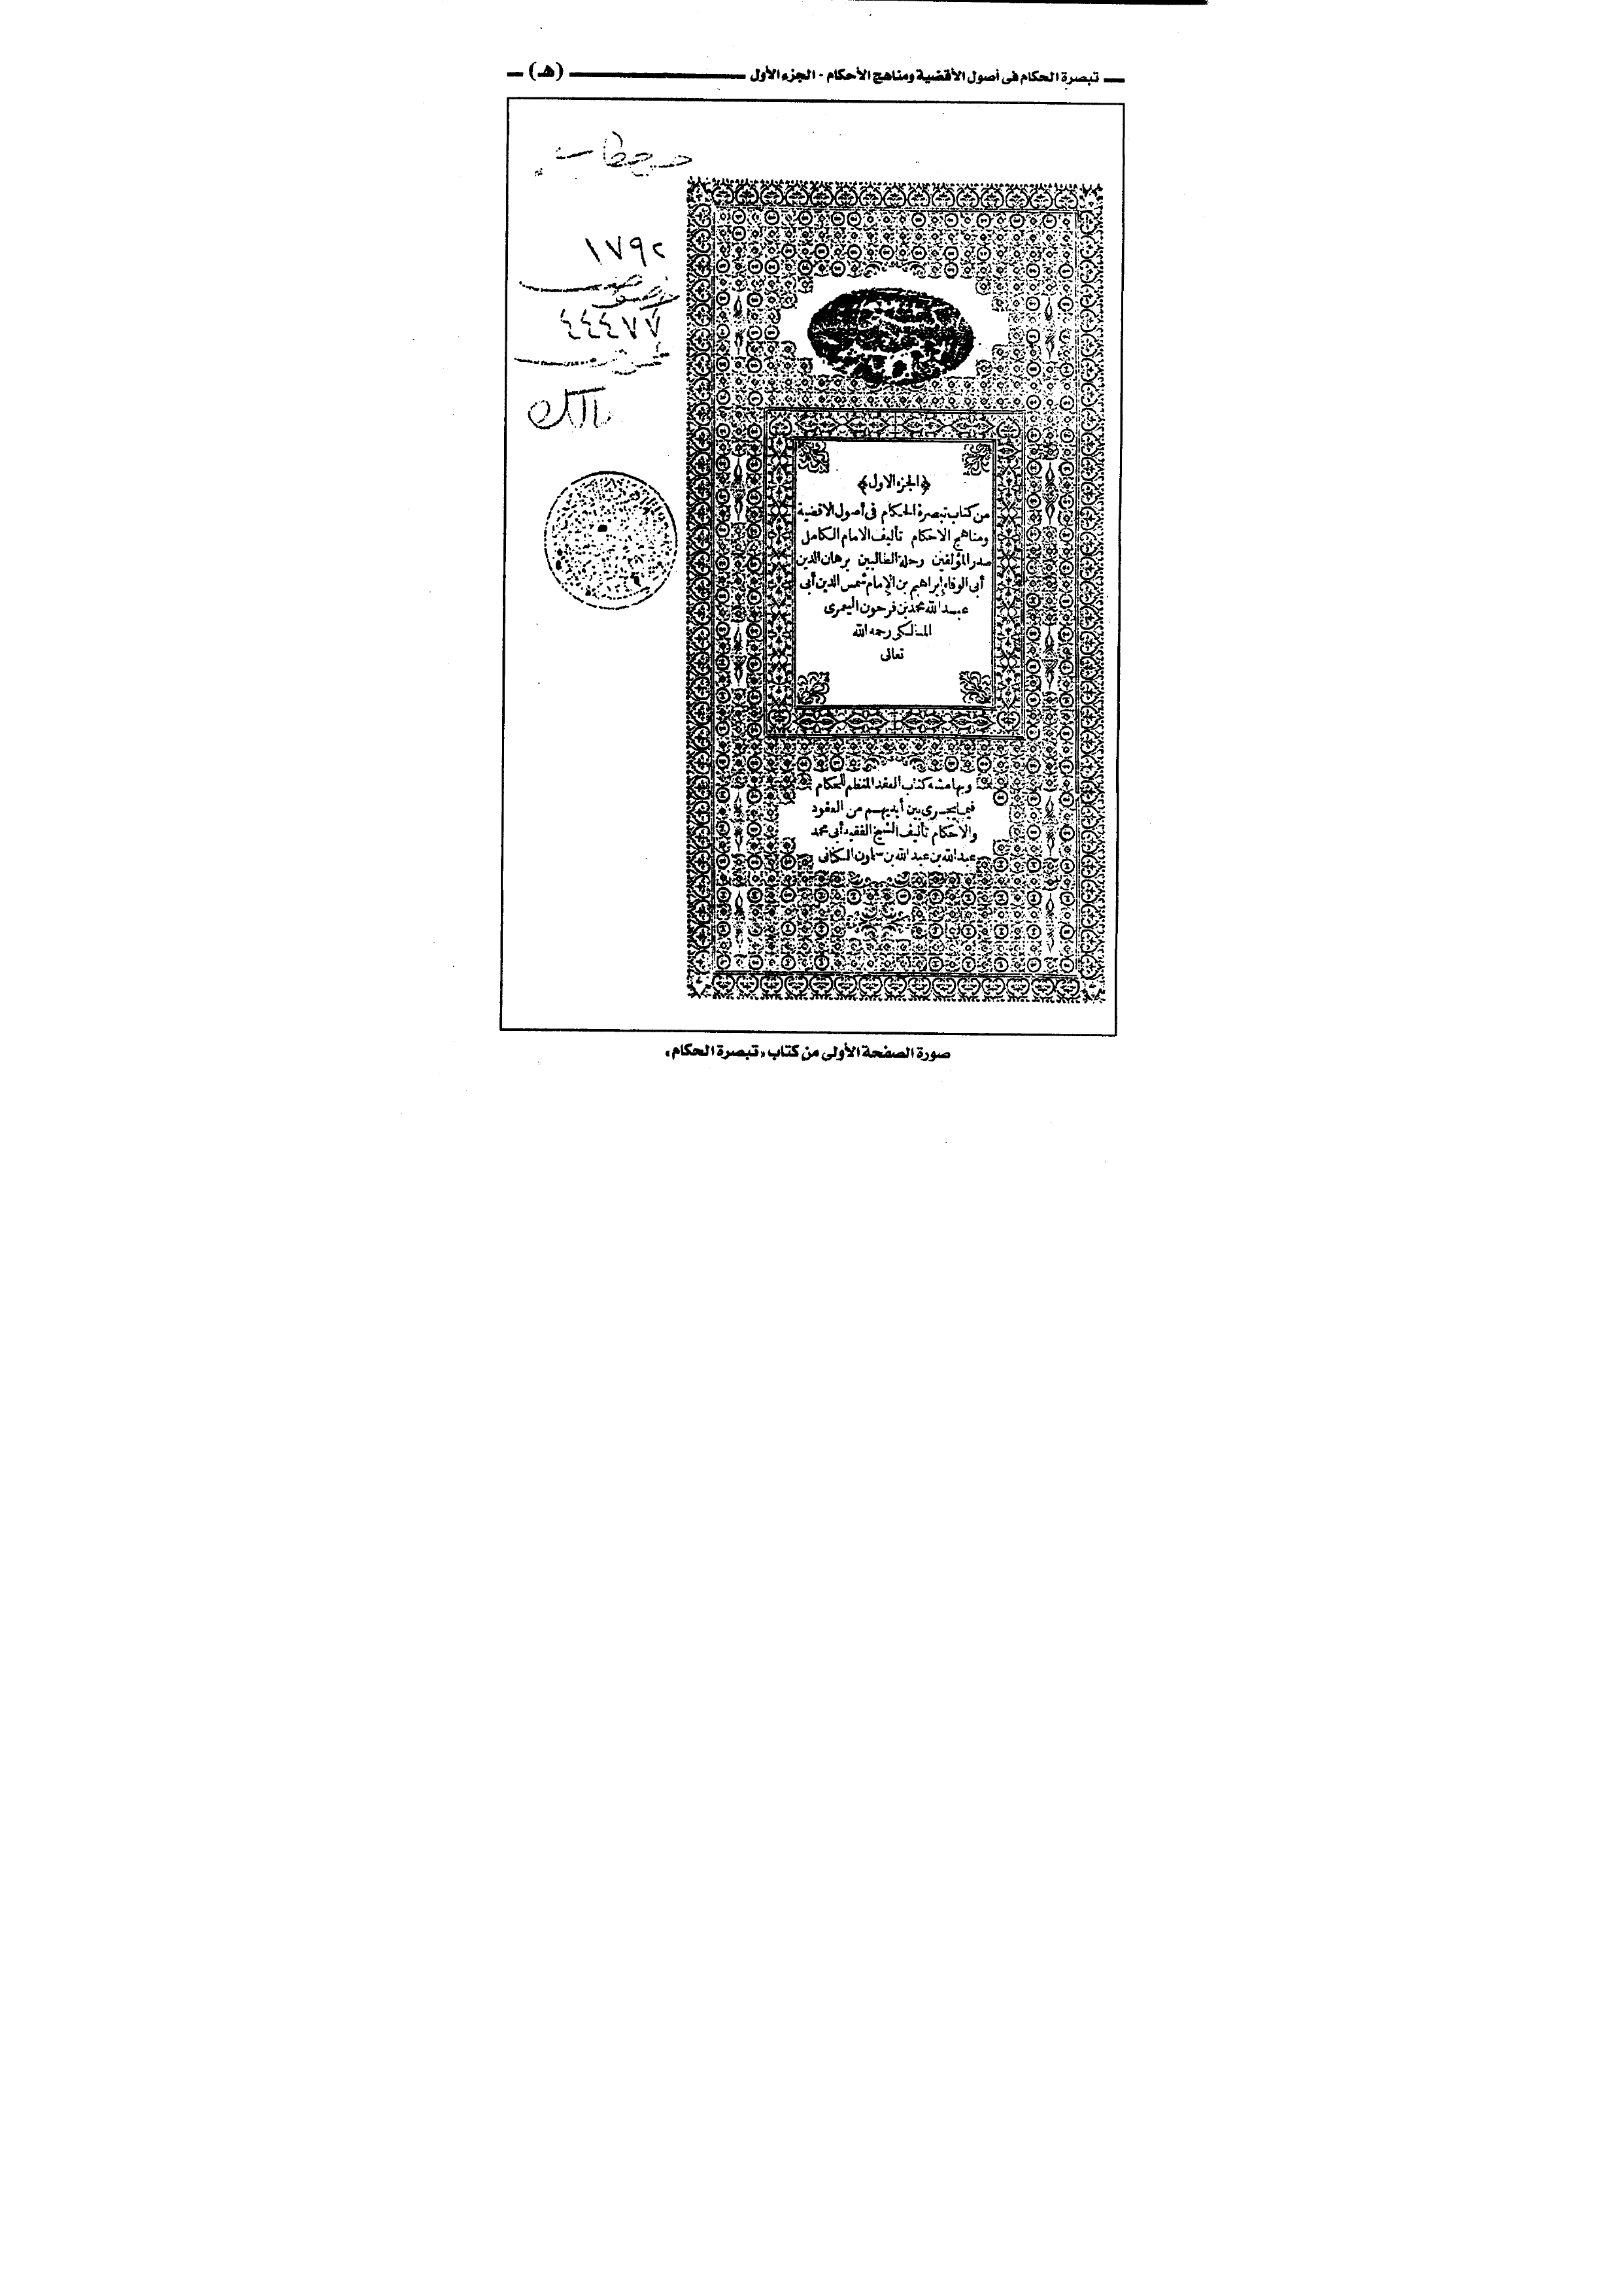 تبصرة الحكام فى أصول الأقضية ومناهج الأحكام - الجزء الأول (هـ)
١٧٩٢
٤٤٤٧٧
﴿الجزء الاول﴾
من كتاب تبصرة الحكام فى أصول الاقضية
ومناهج الاحكام تأليف الامام الكامل
صدر المؤلفين رحلة الطالبين برهان الدين
أبى الوفاء إبراهيم بن الإمام شمس الدين أبى
عبد الله محمد بن فرحون اليعمرى
المالكى رحمه الله
تعالى
وبهامشه كتاب العقد المنظم للحكام
فيما يجرى بين أيديهم من العقود
والاحكام تأليف الشيخ الفقيه أبى محمد
عبد الله بن عبد الله بن سلمون الكنانى
صورة الصفحة الأولى من كتاب «تبصرة الحكام»